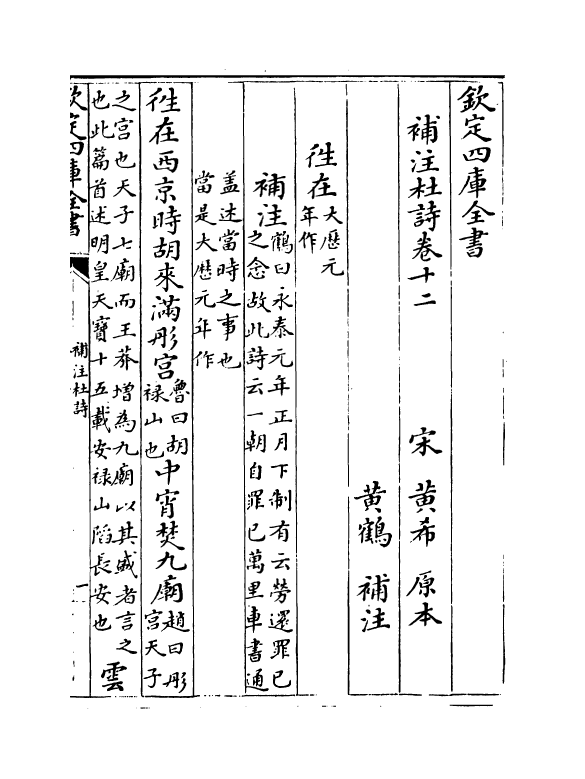 欽定四庫全書
補注杜詩卷十二 宋 黃希 原本
黃鶴 補注
徃在大厯元
年作
補注鶴曰永泰元年正月下制有云勞還罪已
之念故此詩云一朝自罪已萬里車書通
盖述當時之事也
當是大厯元年作
徃在西京時胡來滿彤宮魯曰胡
禄山也中宵焚九廟趙曰彤
宮天子
之宮也天子七廟而王莽增為九廟以其盛者言之
也此篇首述明皇天寶十五載安禄山陷長安也雲
欽定四庫全書
補注杜詩
一